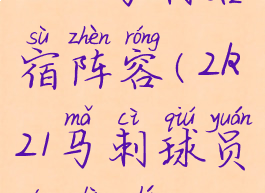 sù zhèn róng
宿阵容(2K
mǎ cì qiú yuán
21马刺球员